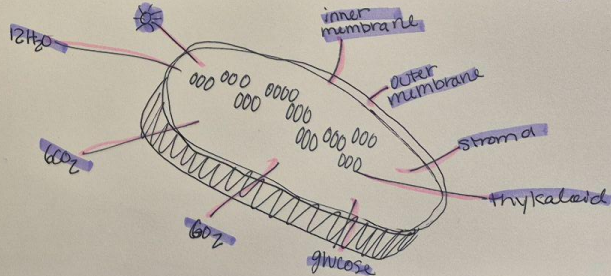 inner
membrane
12H₂O
outer
membrane
stroma
thykaloid
6CO₂
6O₂
glucose